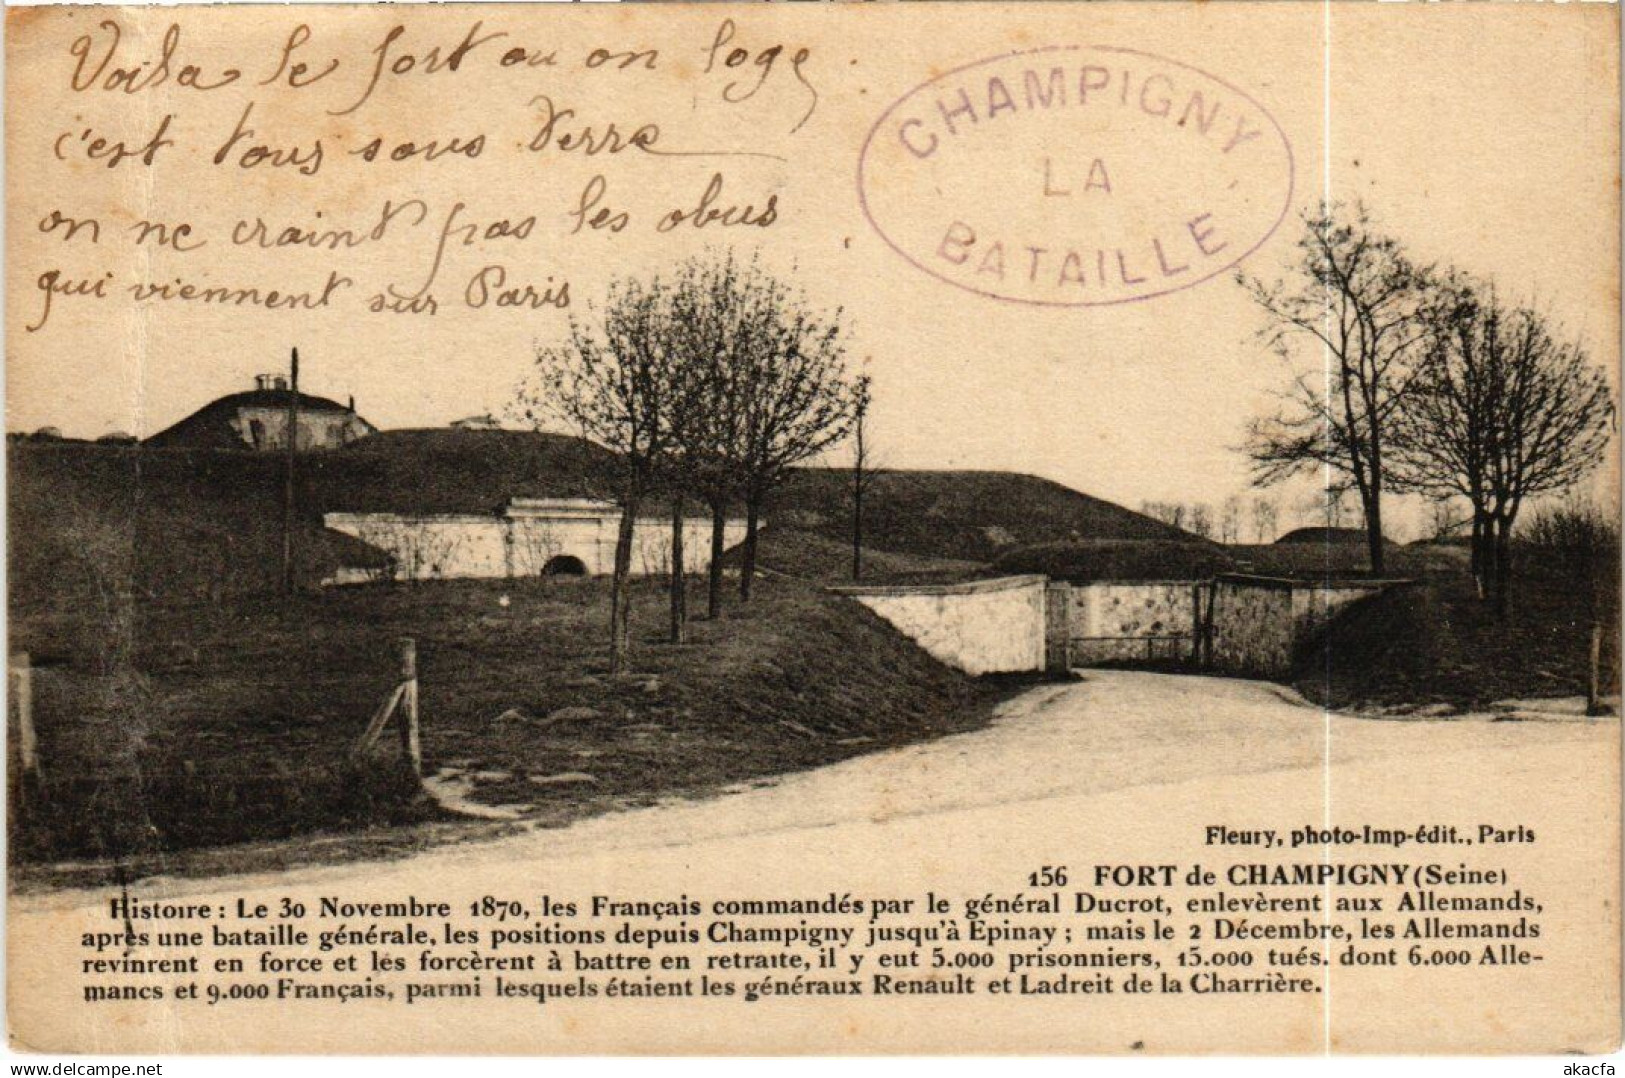 Voila le fort ou on loge
c'est tous sous Terre
on ne craint pas les obus
qui viennent sur Paris
CHAMPIGNY
LA
BATAILLE
Fleury, photo-Imp-édit., Paris
156 FORT de CHAMPIGNY (Seine)
Histoire : Le 30 Novembre 1870, les Français commandés par le général Ducrot, enlevèrent aux Allemands,
après une bataille générale, les positions depuis Champigny jusqu'à Epinay ; mais le 2 Décembre, les Allemands
revinrent en force et les forcèrent à battre en retraite, il y eut 5.000 prisonniers, 15.000 tués. dont 6.000 Alle-
mancs et 9.000 Français, parmi lesquels étaient les généraux Renault et Ladreit de la Charrière.
delcampe.net
akacfa